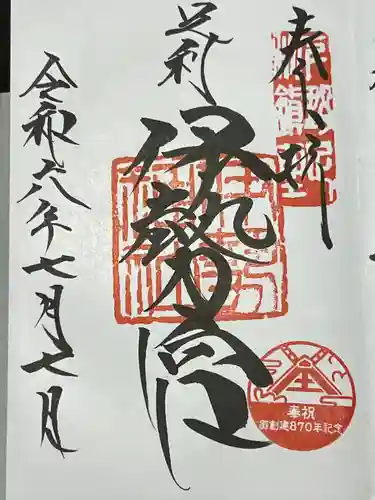 奉拝
足利
伊勢宮
令和六年七月七日
奉祝
御創建870年記念